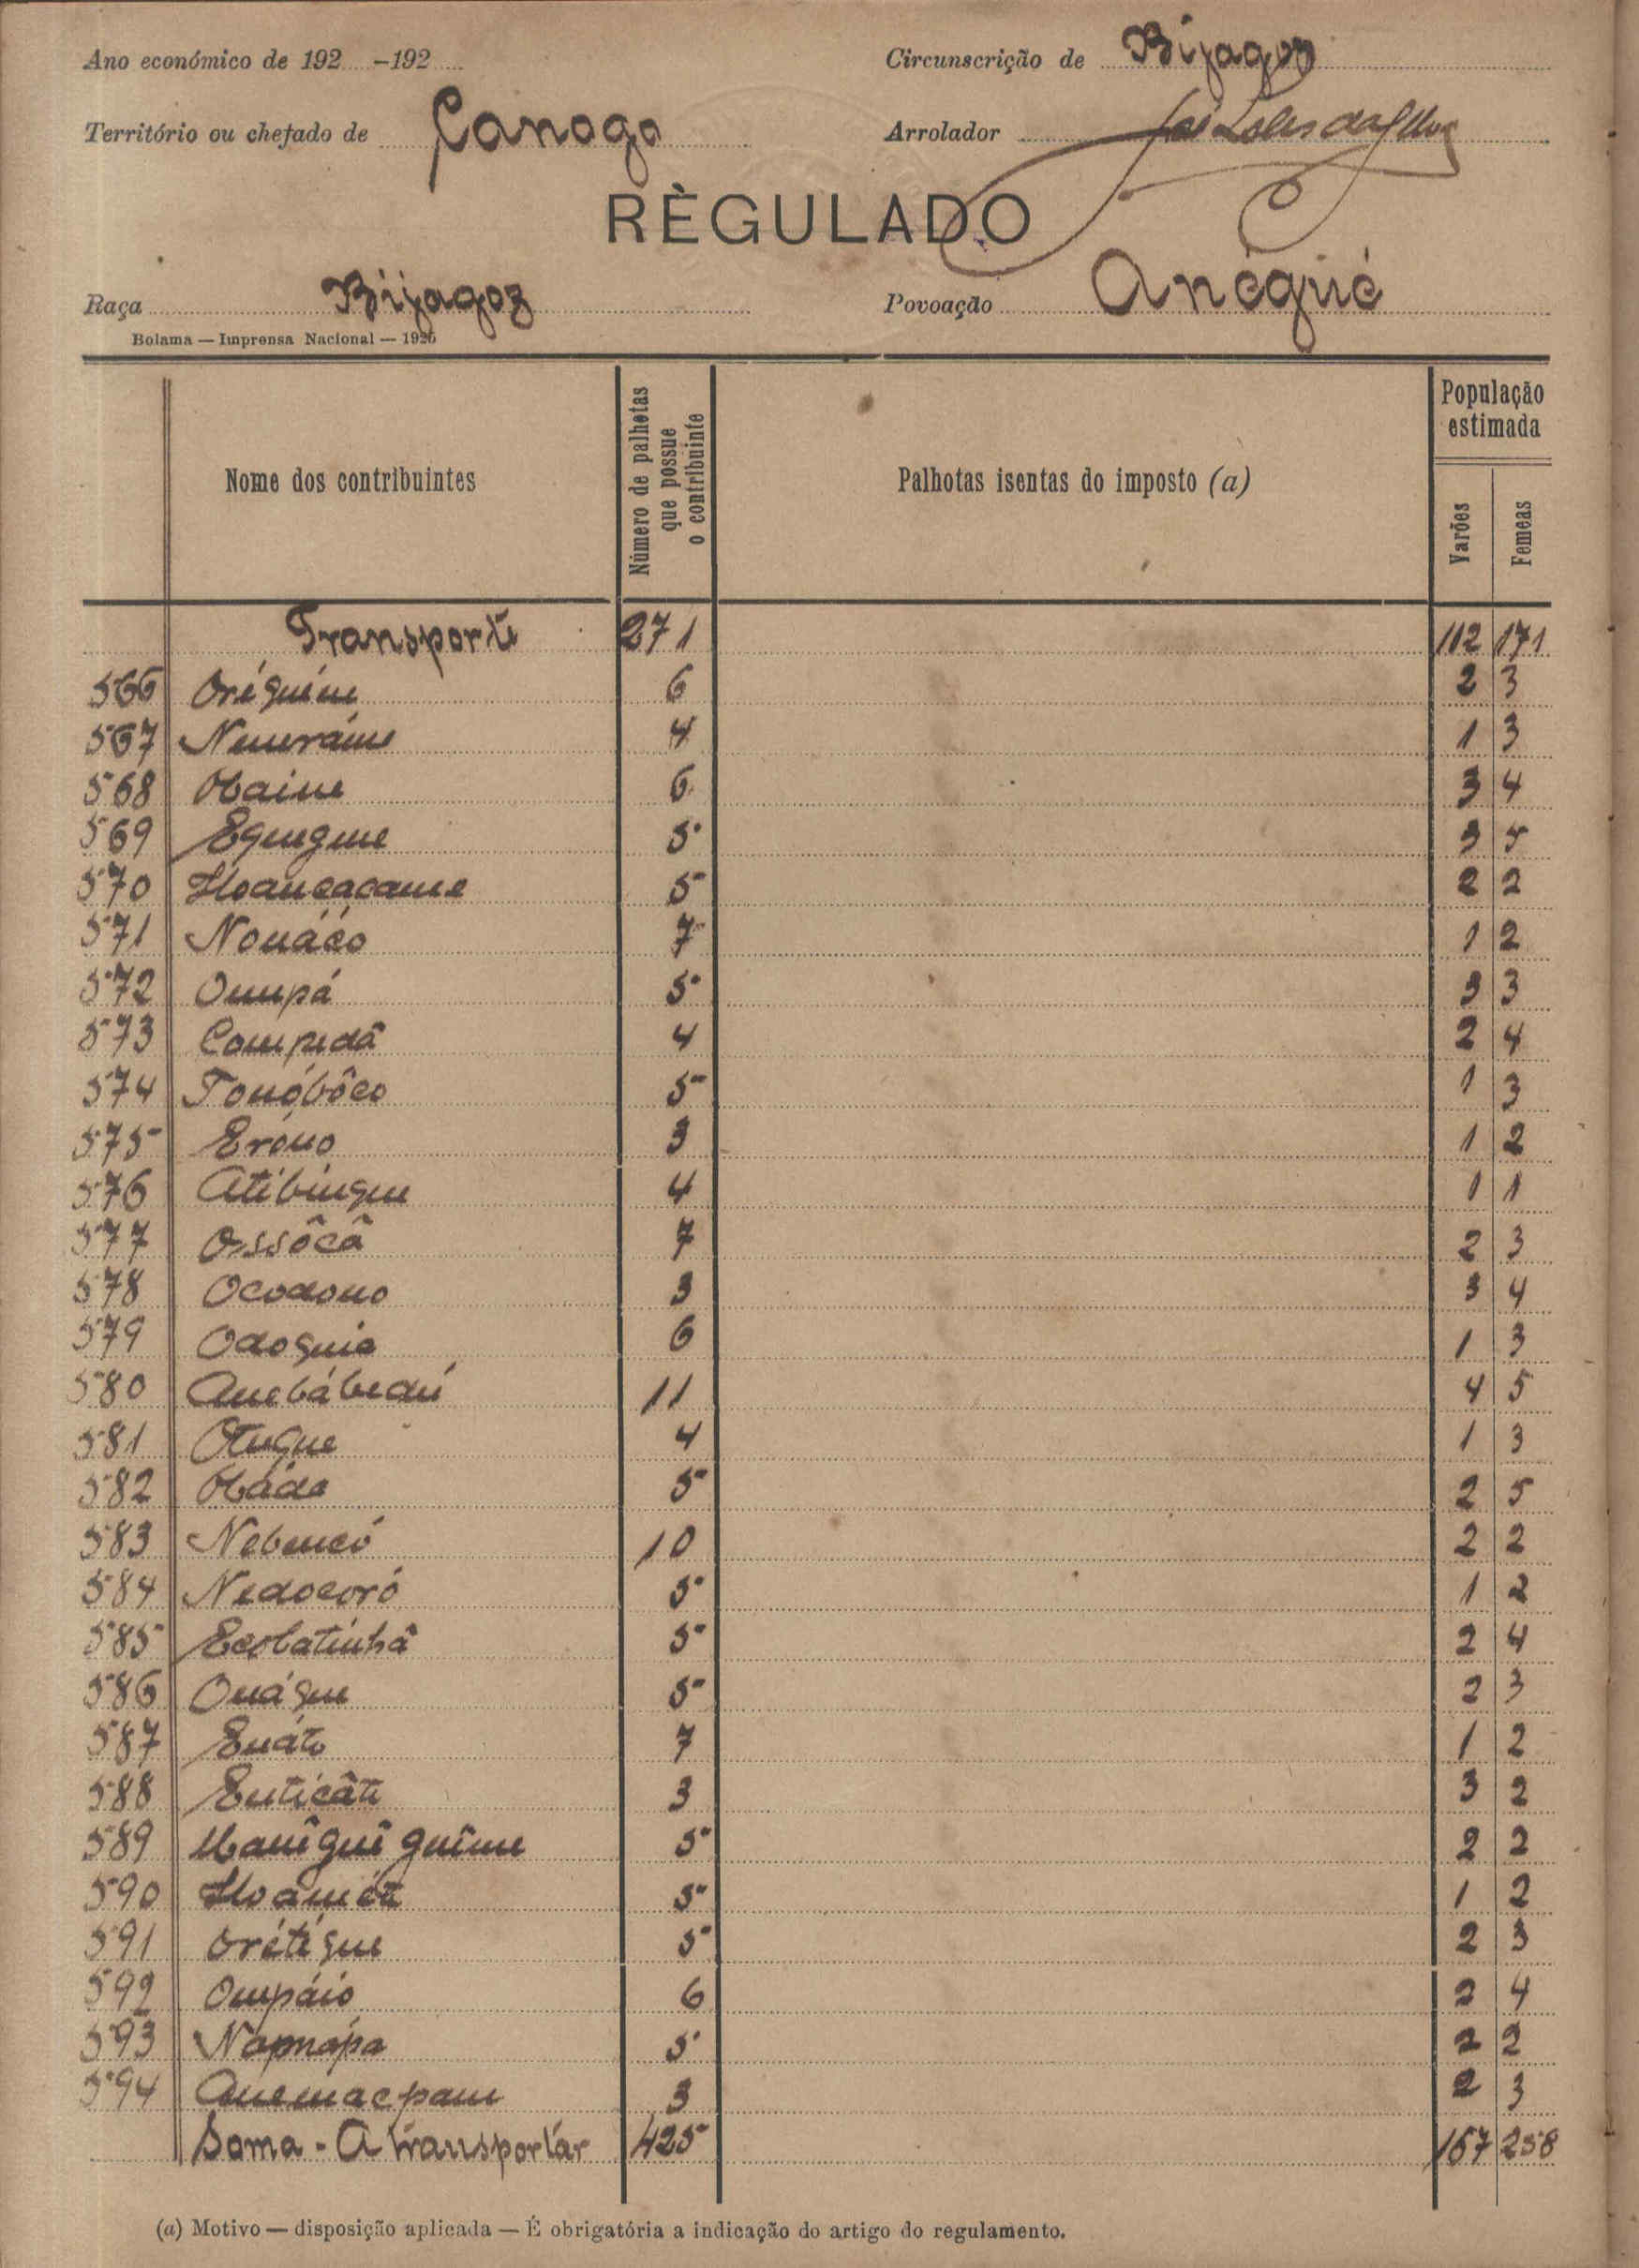 Ano económico de 192 -192
Circunscrição de Bijagoz
Território ou chefado de Canogo
Arrolador
RÈGULADO
Raça Bijagoz
Povoação Anéguè
Bolama — Imprensa Nacional — 1926
População estimada
Nome dos contribuintes
Número de palhetas que possue o contribuinte
Palhotas isentas do imposto (a)
Varões
Femeas
Transporte 271 112 171
566 Oréguéne 6 2 3
567 4 1 3
568 Obaine 6 3 4
569 Egungune 5 3 5
570 5 2 2
571 Nonácó 7 1 2
572 Ounpá 5 3 3
573 5 4 2 4
574 Tonóbôco 5 1 3
575 Eróno 3 1 2
576 Atibingue 4 1 1
577 Ossôcâ 7 2 3
578 Ocodono 3 3 4
579 Odoguia 6 1 3
580 11 4 5
581 Otugue 4 1 3
582 Obáda 5 2 5
583 10 2 2
584 Nedocoró 5 1 2
585 Ecobatinhâ 5 2 4
586 Onágue 5 2 3
587 Enáto 7 1 2
588 Enticâti 3 3 2
589 5 2 2
590 5 1 2
591 Orétégue 5 2 3
592 Ompáio 6 2 4
593 Napnápa 5 2 2
594 3 2 3
Soma - A transportar 425 167 258
(a) Motivo — disposição aplicada — É obrigatória a indicação do artigo do regulamento.